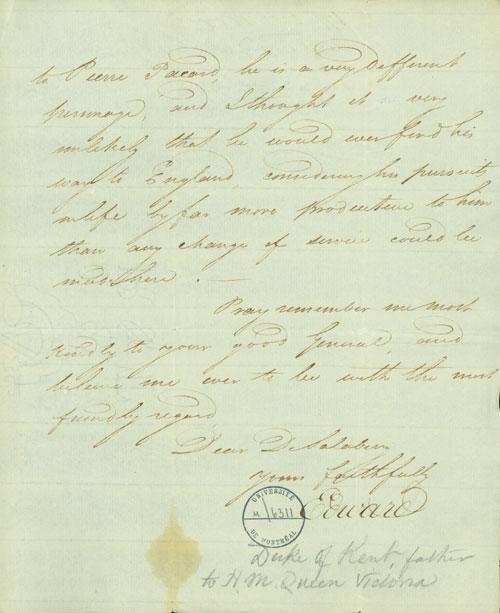 to Pierre Pacaud, he is a very different
personage, and I thought it very
unlikely that he would ever find his
way to England, considering his pursuits
in life by far more productive to him
than any change of service could be
made here. —
Pray remember me most
kindly to your good General, and
believe me ever to be with the most
friendly regard
Dear De Salaberry
Yours faithfully
Edward
UNIVERSITÉ
M 6311
DE MONTRÉAL
Duke of Kent, father
to H.M. Queen Victoria